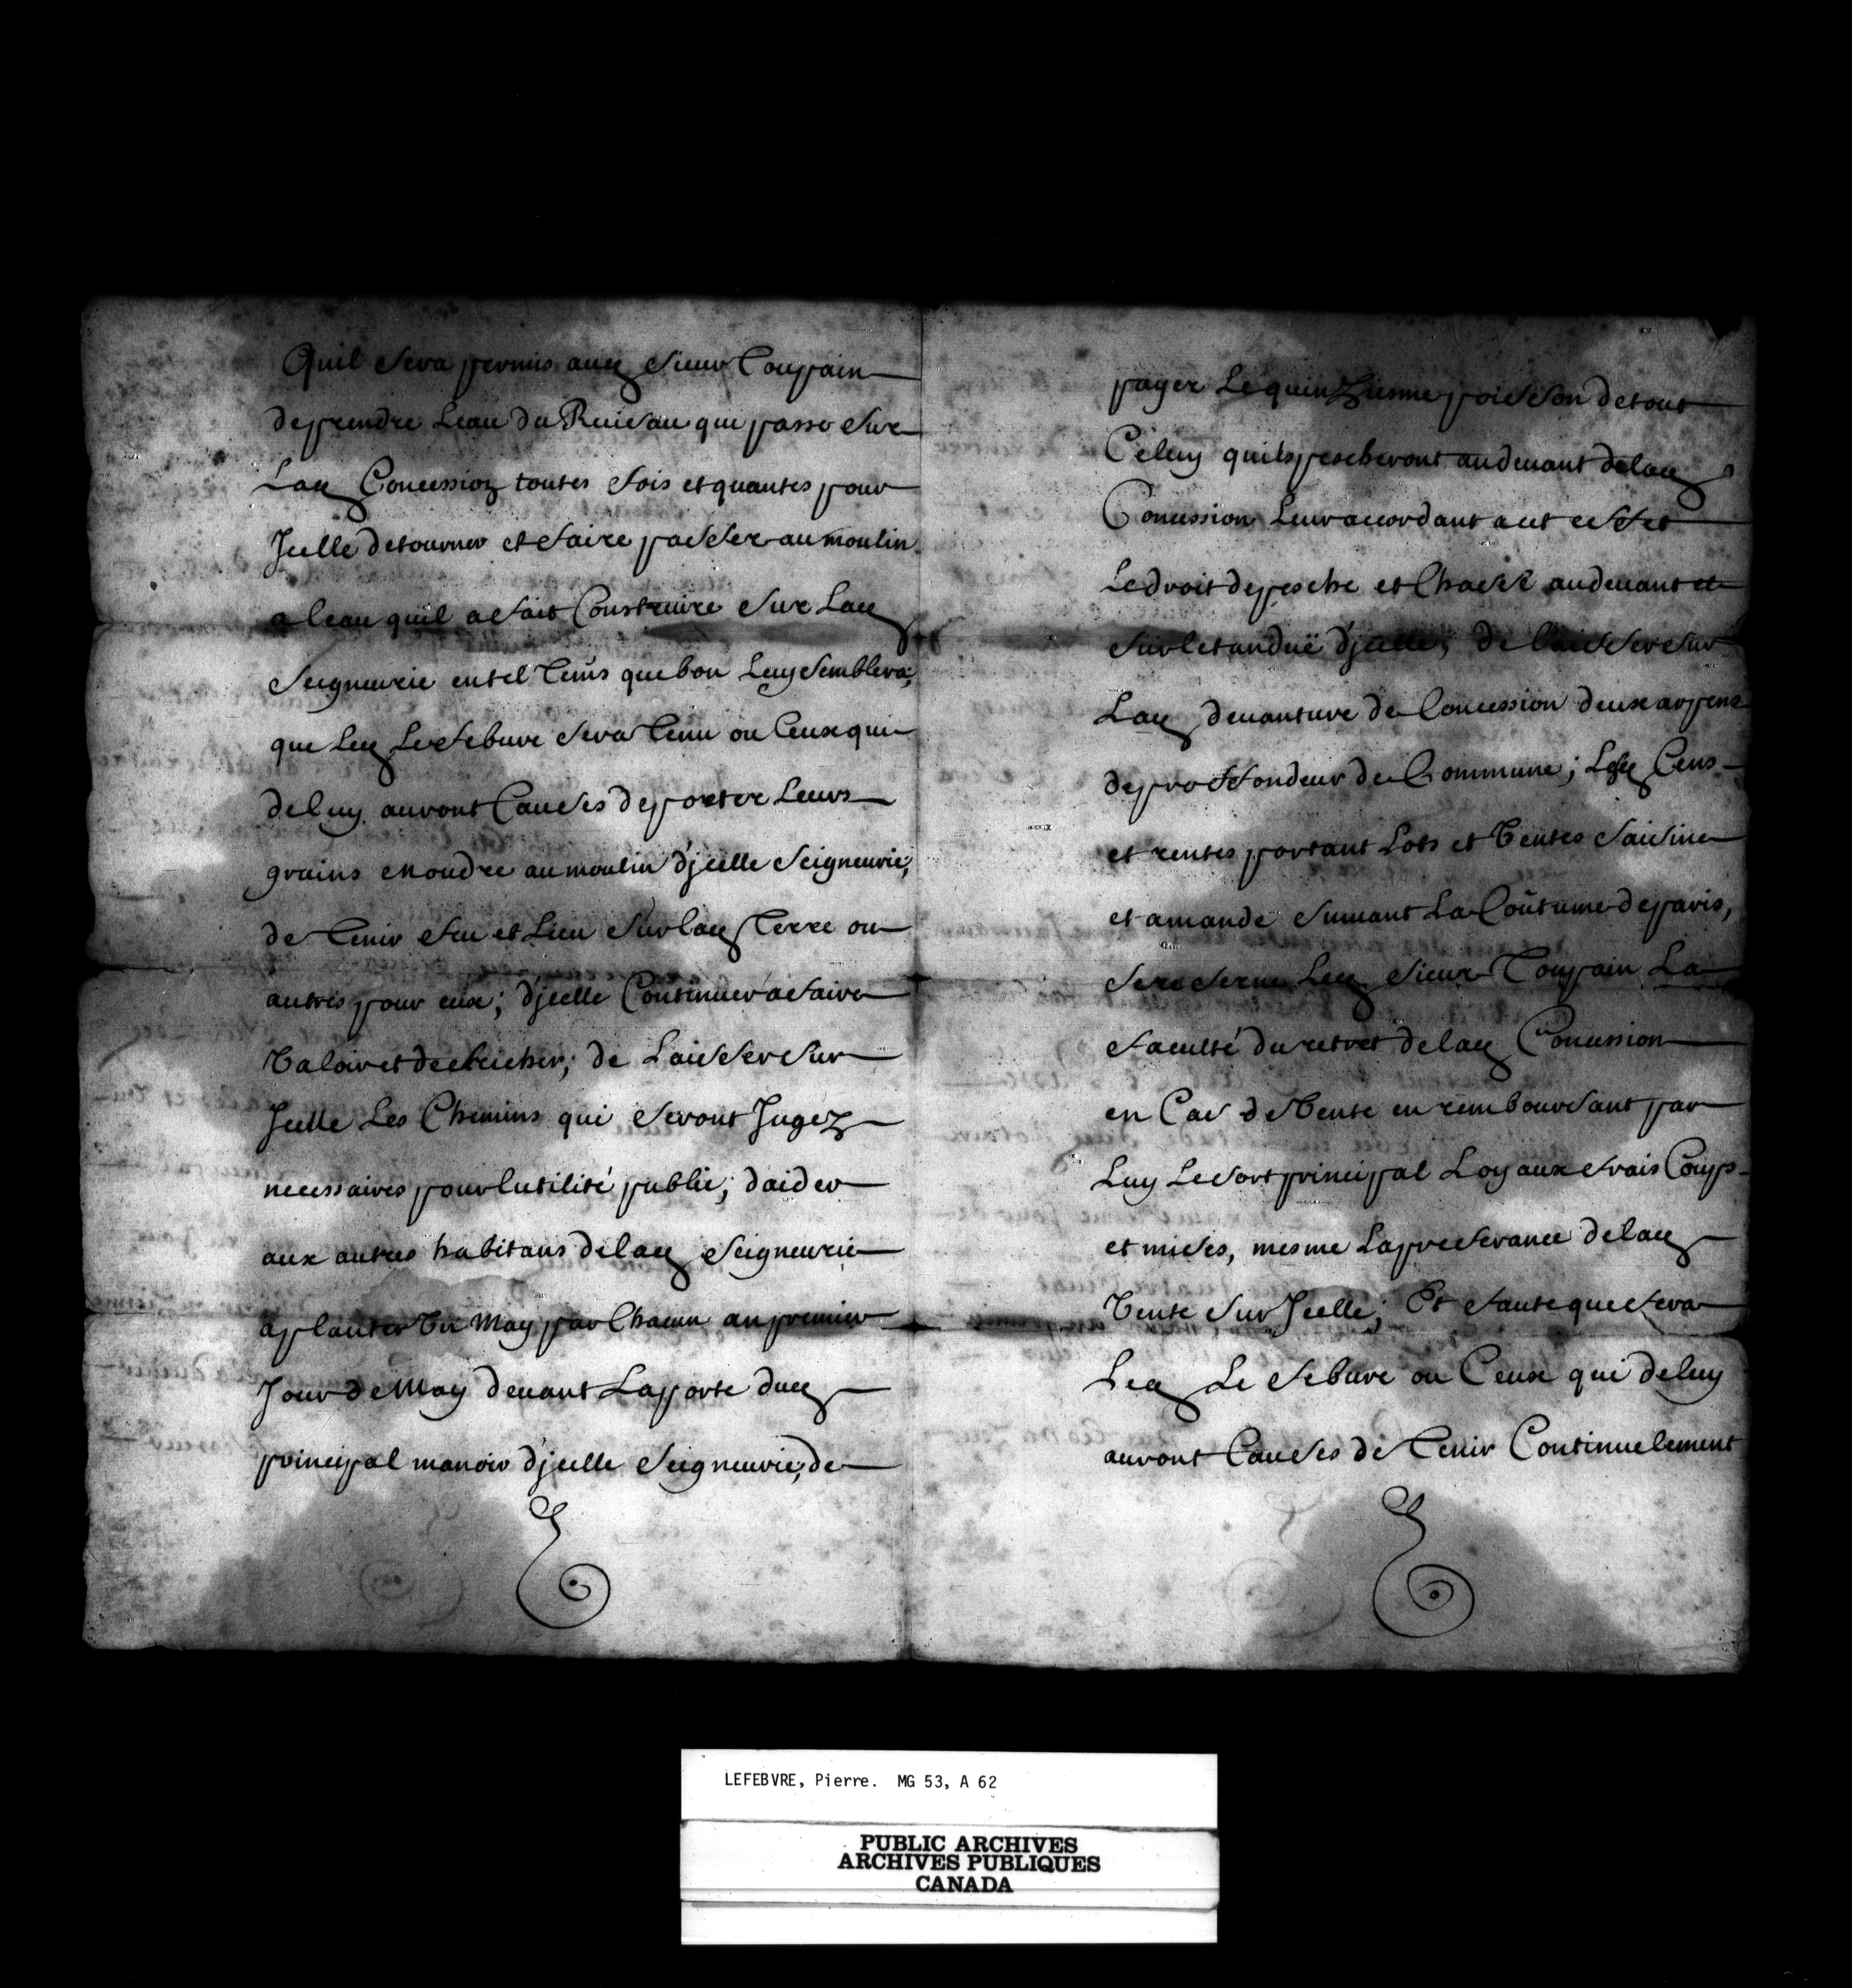 Quil sera permis aud Sieur Toupain
de prendre Leau du Ruisau qui passe sur
Lad Concession toutes fois et quantes pour
Jcelle detourner et faire passer au moulin
a leau quil a fait Construire sur Lad
Seigneurie en tel Tems que bon Luy semblera;
que Led Lefebure sera Tenu ou Ceux qui
de luy auront Causes de porter Leurs
grains moudre au moulin d'jcelle Seigneurie;
de Tenir feu et Lieu sur lad Terre ou
autres pour eux; d'jcelle Continuer a faire
Valoir et deffricher; de Laisser sur
Jcelle Les Chemins qui seront Jugez
necessaires pour lutilité public; daider
aux autres habitans de lad Seigneurie
a planter Un May par Chacun an premier
Jour de May deuant La porte dud
principal manoir d'jcelle Seigneurie; de
payer Le quinziesme poisson de tout
Celuy quils pescheront au deuant de lad
Concession Leur accordant a cet effet
Le droit de pesche et Chasse au deuant et
sur letanduë d'jcelle; de laisser sur
Lad deuanture de Concession deux arpens
de proffondeur de Commune; Lesd Cens
et rentes portant Lots et Ventes saisine
et amande suiuant La Coûtume de paris,
se reserue Led Sieur Toupain La
faculté du retret de lad Concession
en Cas de Vente en remboursant par
Luy Le sort principal Loyaux frais Coups
et mises, mesme La preferance de lad
Vente sur Jcelle; Et faute que fera
Led Le febure ou Ceux qui de luy
auront Causes de Tenir Continuelement
LEFEBVRE, Pierre. MG 53, A 62
PUBLIC ARCHIVES
ARCHIVES PUBLIQUES
CANADA